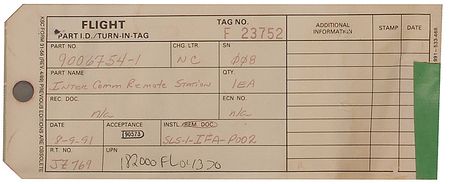 FLIGHT
PART I.D. / TURN-IN-TAG
TAG NO.
F 23752
ADDITIONAL INFORMATION
STAMP
DATE
KSC FORM 31-166 (REV. 4/89) PREVIOUS EDITIONS ARE OBSOLETE
PART NO.
9006754-1
CHG. LTR.
NC
S/N
008
PART NAME
Inter Comm Remote Station
QTY.
1EA
REC. DOC.
n/a
ECN NO.
n/a
DATE
8-9-91
ACCEPTANCE
INSTL./REM. DOC.
SLS-1-IFA-P002
R.T. NO.
JZ769
UPN